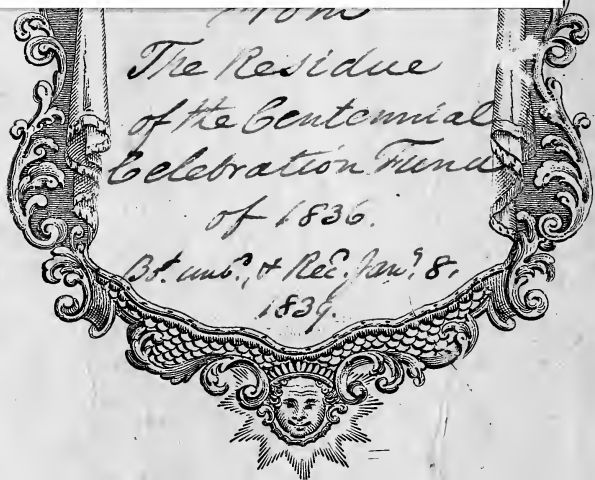 From
The Residue
of the Centennial
Celebration Fund
of 1836.
& Rec. Jany. 8,
1839.